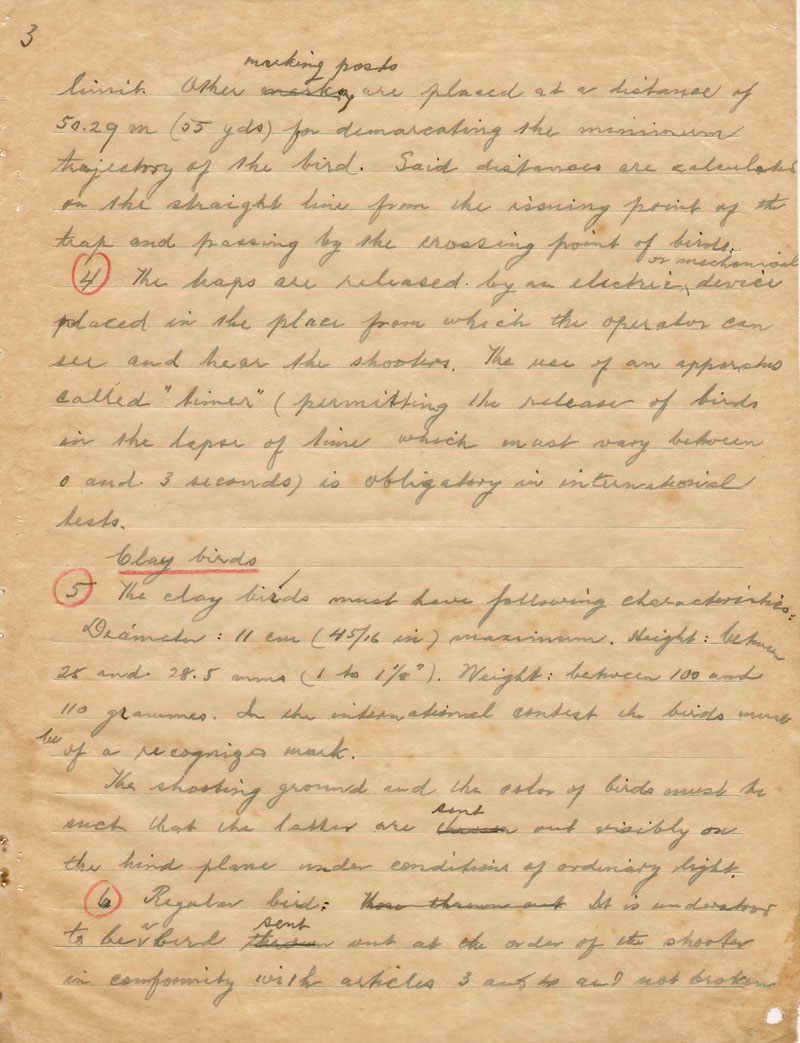 3
marking posts
limit. Other marks, are placed at a distance of
50.29 m (55 yds) for demarcating the minimum
trajectory of the bird. Said distances are calculated
on the straight line from the issuing point of the
trap and passing by the crossing point of birds.
or mechanical
4 The traps are released by an electric, device
placed in the place from which the operator can
see and hear the shooters. The use of an apparatus
called "timer" (permitting the release of birds
in the lapse of time which must vary between
0 and 3 seconds) is obligatory in international
tests.
Clay birds
5 The clay birds must have following characteristics:
Diameter: 11 cm (4 5/16 in) maximum. Height: between
25 and 28.5 mms (1 to 1 1/8"). Weight: between 100 and
110 grammes. In the international contest the birds must
be of a recognized mark.
The shooting ground and the color of birds must be
sent
such that the latter are thrown out visibly on
the hind plane under conditions of ordinary light.
6 Regular bird: Those thrown out It is understood
sent
to be a bird thrown out at the order of the shooter
in conformity with articles 3 and and not broken